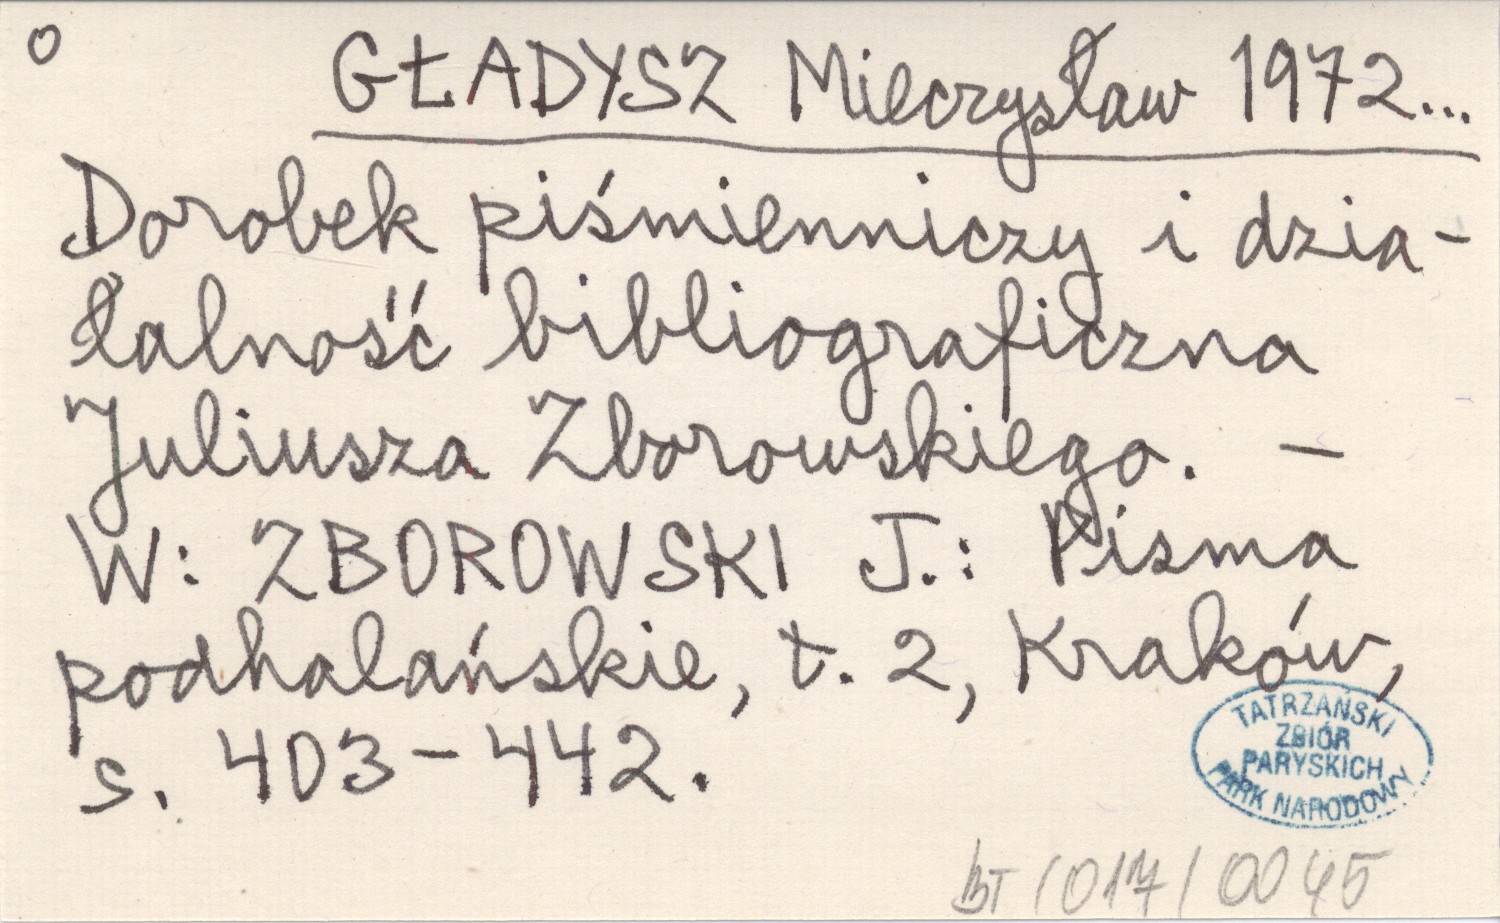 o
GŁADYSZ Mieczysław 1972...
Dorobek piśmienniczy i dzia-
łalność bibliograficzna
Juliusza Zborowskiego. –
W: ZBOROWSKI J.: Pisma
podhalańskie, t. 2, Kraków,
s. 403-442.
TATRZAŃSKI
ZBIÓR
PARYSKICH
PARK NARODOWY
BT/017/0045